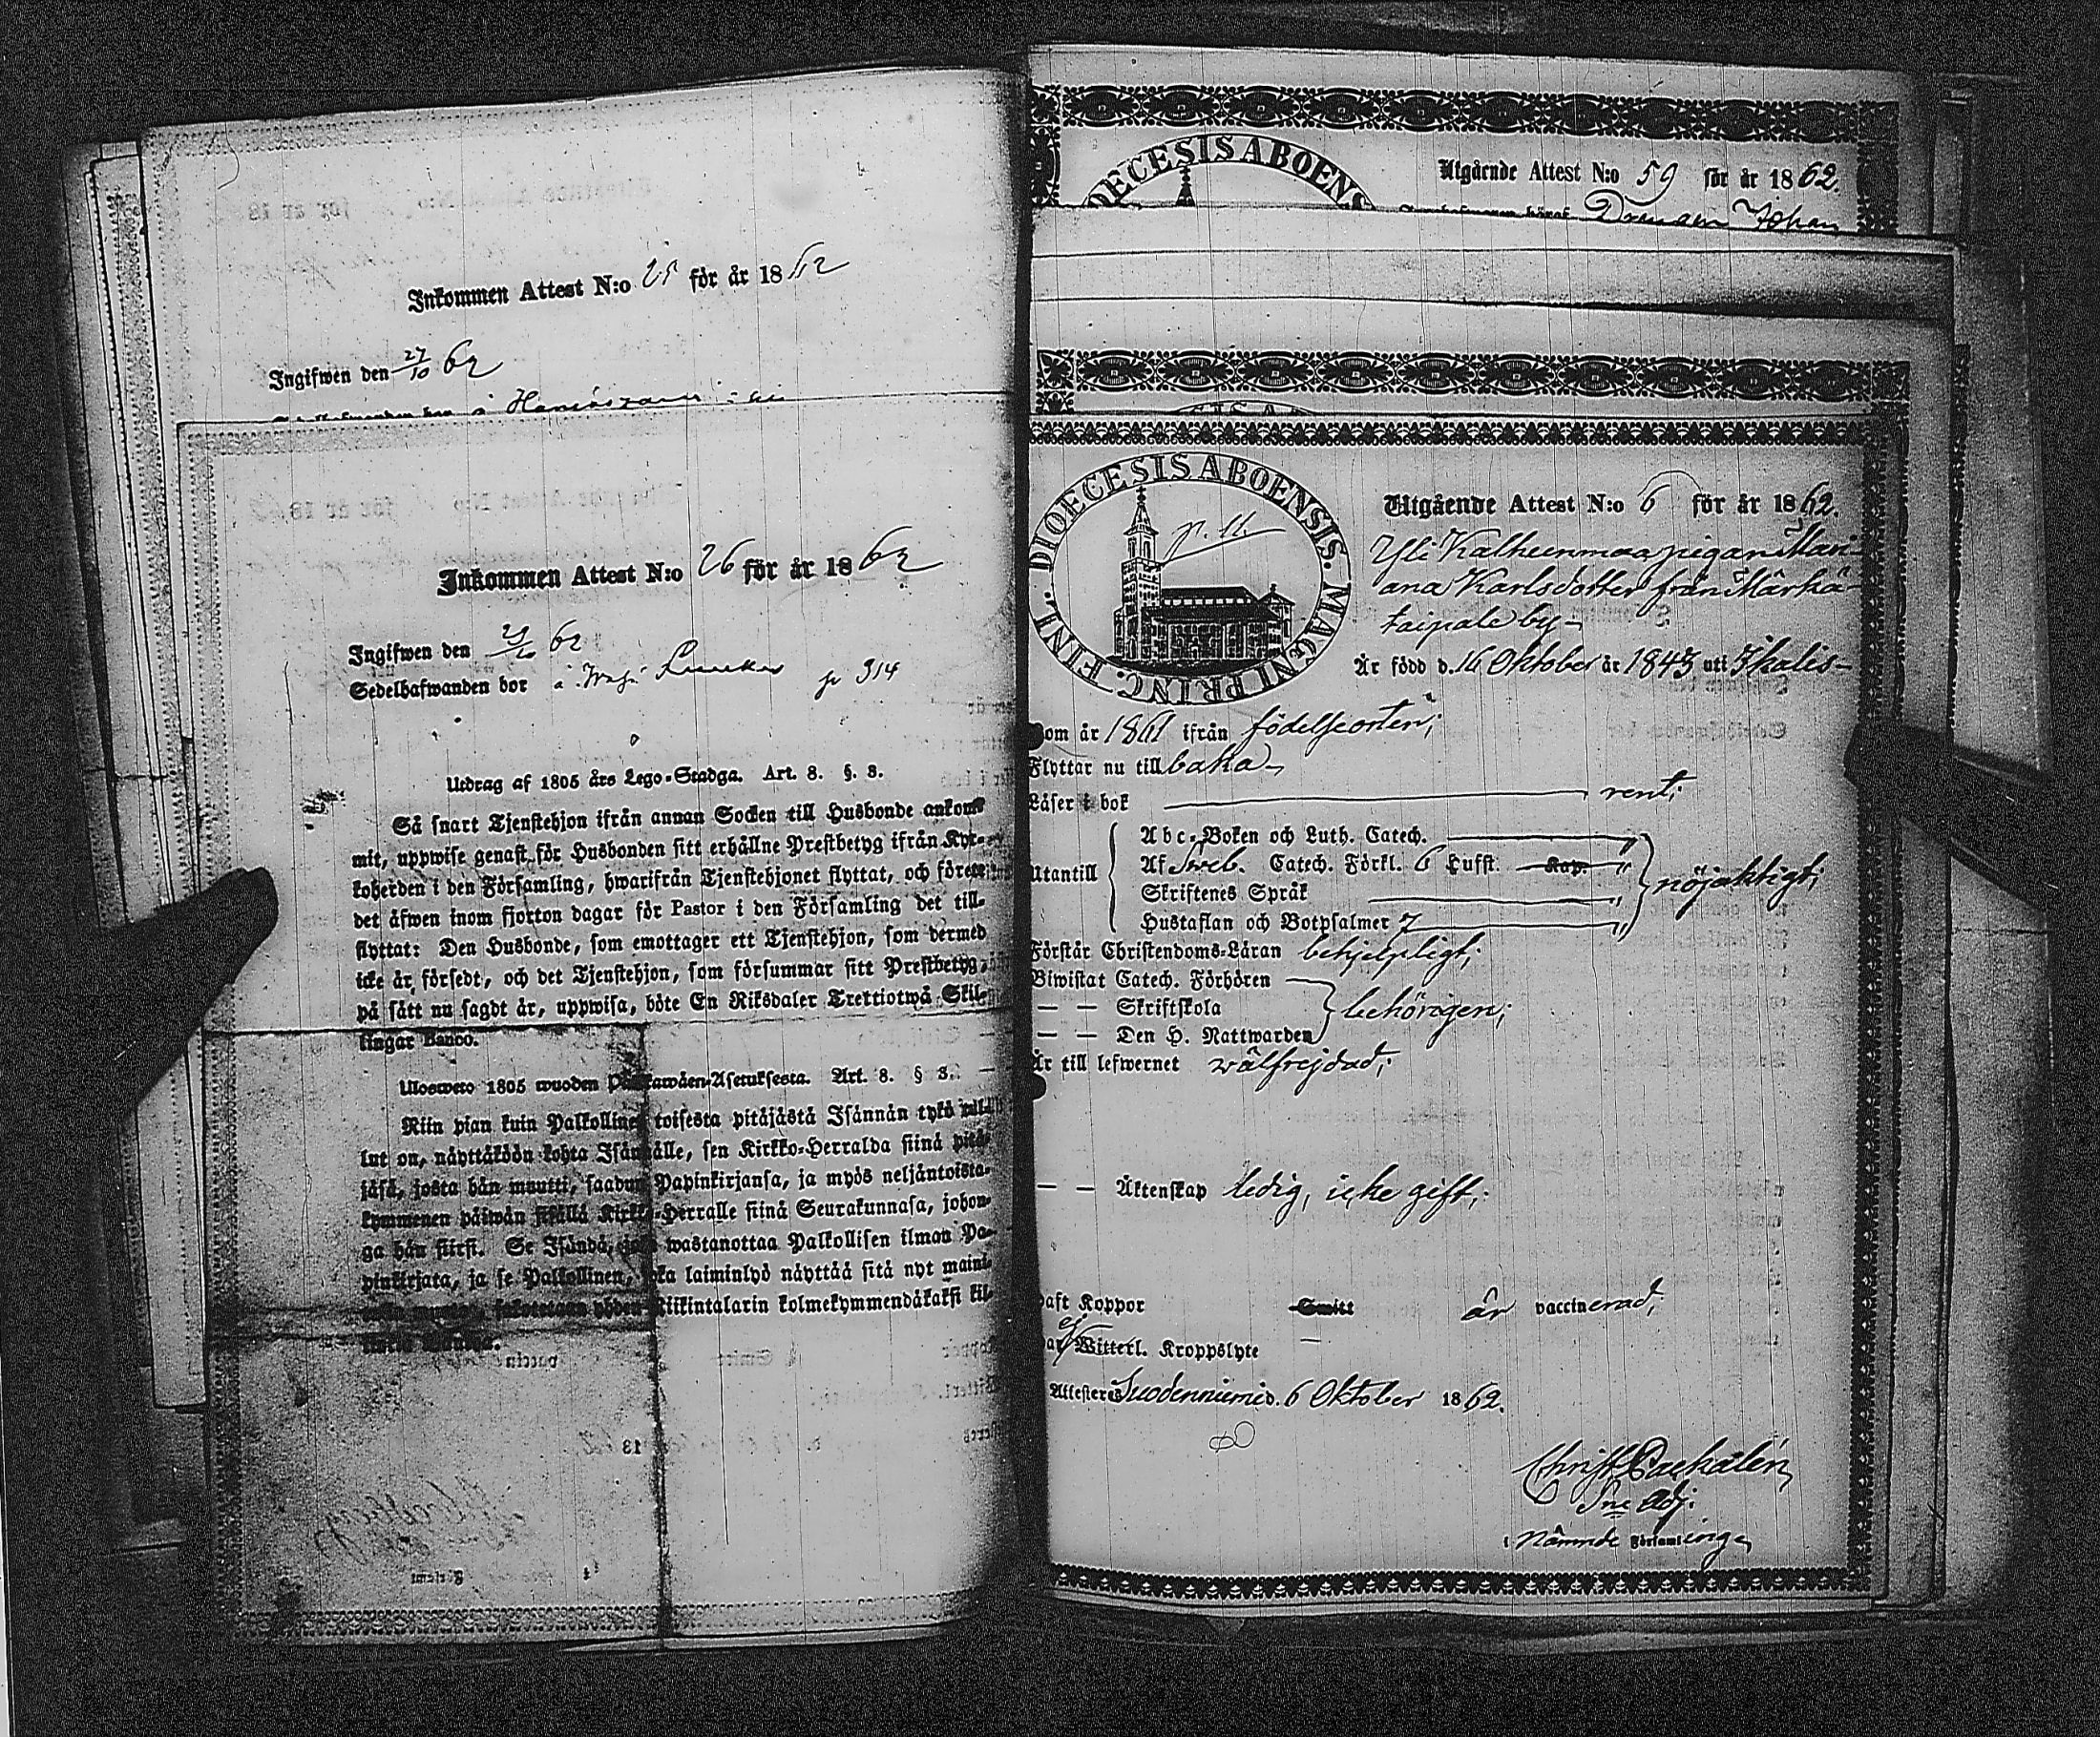 Inkommen Attest N:o 25 för år 1862
Ingifwen den 27/10 62
Inkommen Attest N:o 26 för år 1862
Ingifwen den 62
Sedelhafwanden bor å p 314
Utdrag af 1805 års Lego-Stadga. Art. 8. §. 8.
Så snart Tjenstehjon ifrån annan Socken till Husbonde ankom-
mit, uppwise genast för Husbonden sitt erhållne Prestbetyg ifrån Kyr-
koherden i den Församling, hwarifrån Tjenstehjonet flyttat, och förete
det äfwen inom fjorton dagar för Pastor i den Församling det till-
flyttat: Den Husbonde, som emottager ett Tjenstehjon, som dermed
icke är försedt, och det Tjenstehjon, som försummar sitt Prestbetyg,
på sätt nu sagdt är, uppwisa, böte En Riksdaler Trettiotwå Skil-
lingar Banco.
Ulosweto 1805 wuoden Asetuksesta. Art. 8. § 8.
Niin pian kuin Palkollinen toisesta pitäjästä Isännän tykö tul-
lut on, näyttäköön kohta Isännälle, sen Kirkko-Herralda siinä pitä-
jäsä, josta hän muutti, saadun Papinkirjansa, ja myös neljäntoista-
kymmenen päiwän sisällä Kirkko-Herralle siinä Seurakunnasa, johon-
ga hän siirsi. Se Isändä, joka wastanottaa Palkollisen ilman Pa-
pinkirjata, ja se Palkollinen, joka laiminlyö näyttää sitä nyt maini-
Riikintalarin kolmekymmendäkaksi kil-
DIOECESIS ABOENS
Utgående Attest N:o 59 för år 1862.
Drengen Johan
DIOECESIS ABOENSIS. MAGNI PRINC. FINL.
p. 11.
Utgående Attest N:o 6 för år 1862.
Yli Kalheenmaa pigan Mari-
ana Karlsdotter från Märkä-
taipale by-
Är född d. 16 Oktober år 1843 uti Ikalis-
om år 1861 ifrån födelseorten;
Flyttar nu till baka-
Läser i bok rent;
Utantill
Abc-Boken och Luth. Catech. "
Af Sveb. Catech. Förkl. 6 Lufft. Kap. "
Skriftenes Språk "
Hustaflan och Botpsalmer 7 "
nöjaktigt;
Förstår Christendoms-Läran behjelpligt;
Biwistat Catech. Förhören
— — Skriftskola
— — Den H. Nattwarden
behörigen;
Är till lefwernet wälfrejdad;
— — Äktenskap ledig, icke gift;
haft Koppor Smitt är vaccinerad,
har ej Witterl. Kroppslyte —
Attesteras Suodenniemi d. 6 Oktober 1862.
Christ Packalén
Sne Adj.
i nämnde Församlinge